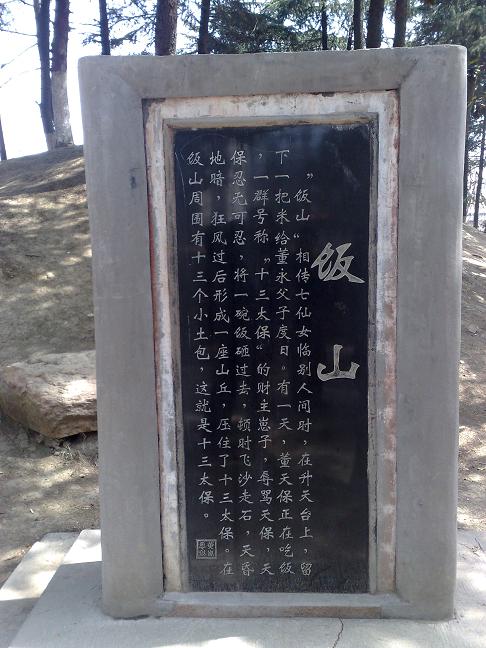 饭山
”饭山“相传七仙女临别人间时，在升天台上，留
下一把米给董永父子度日。有一天，董天保正在吃饭
，一群号称”十三太保“的财主崽子，辱骂天保，天
保忍无可忍，将一碗饭砸过去，顿时飞沙走石，天昏
地暗，狂风过后形成一座山丘，压住了十三太保。在
饭山周围有十三个小土包，这就是十三太保。